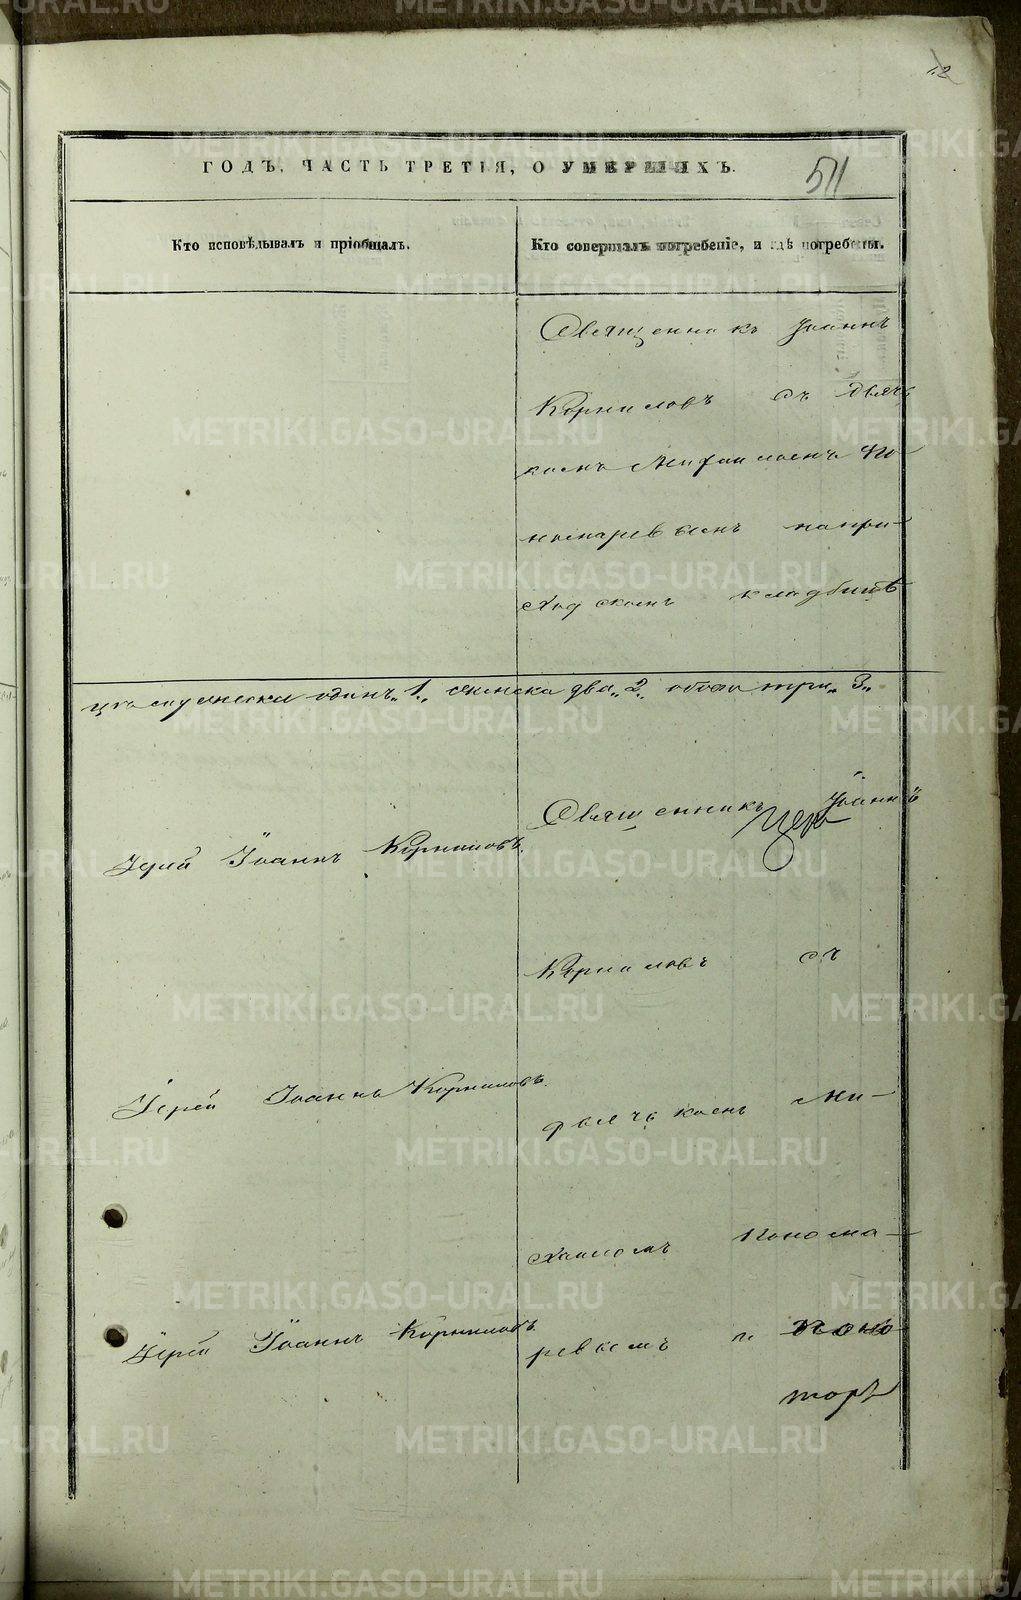 12
ГОДЪ, ЧАСТЬ ТРЕТІЯ, О УМЕРШИХЪ.
511
Кто исповѣдывалъ и пріобщалъ.
Кто совершалъ погребеніе, и гдѣ погребены.
Священникъ Іоаннъ
Корниловъ съ дьяч
комъ Михаиломъ По
номаревымъ на при-
ходскомъ кладбищѣ
ца мужеска одинъ „1„ женска два „2„ обоего три „3„
Іерей Іоаннъ Корниловъ.
Священникъ Іоаннъ
Корниловъ съ
Іерей Іоаннъ Корниловъ.
дьячкомъ Ми-
хаиломъ Понома-
Іерей Іоаннъ Корниловъ.
ревымъ и
METRIKI.GASO-URAL.RU